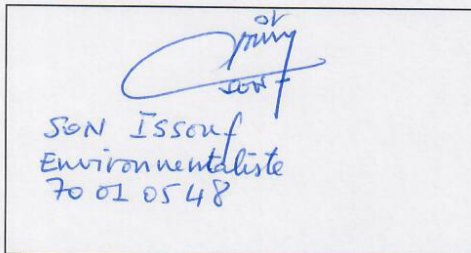 SON Issouf
Environnementaliste
70 01 05 48